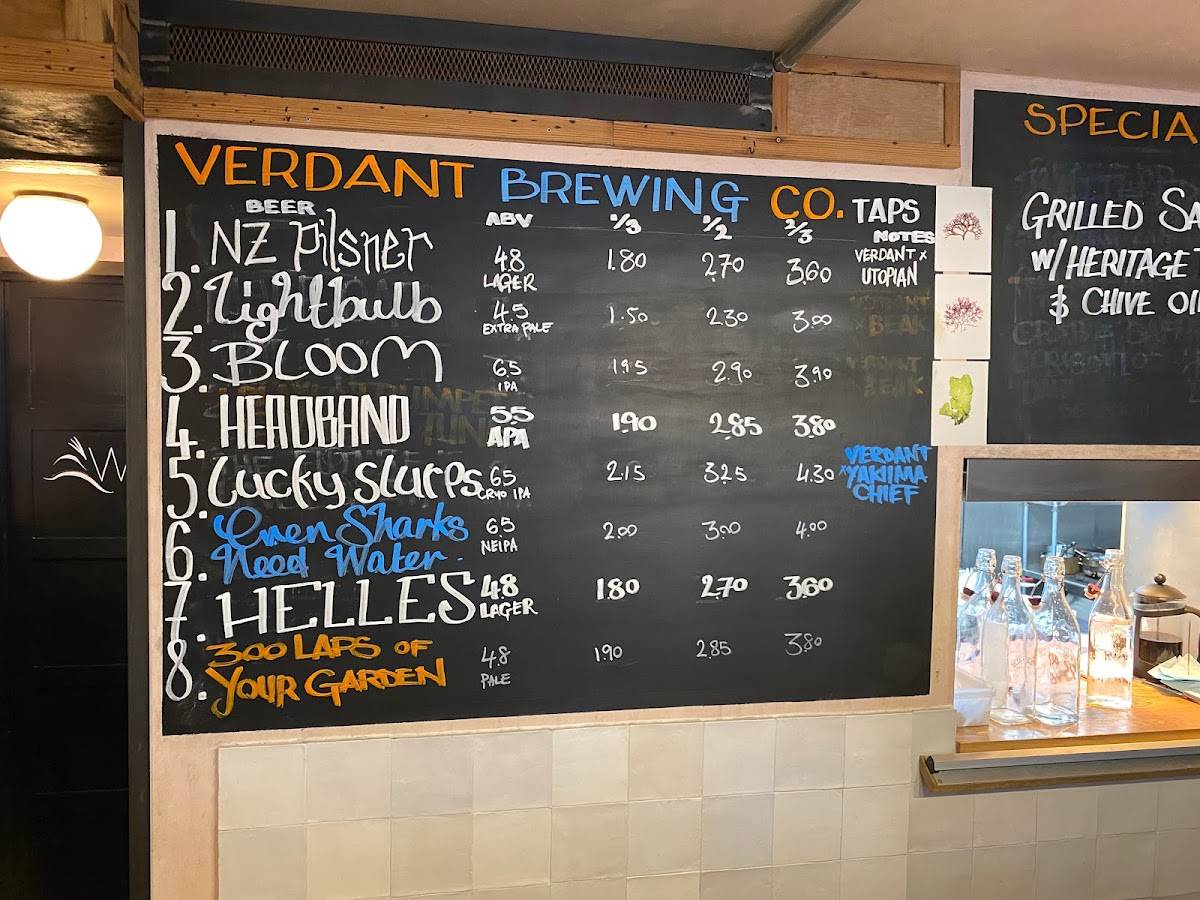 VERDANT BREWING CO. TAPS
BEER ABV 1/3 1/2 2/3 NOTES
1. NZ Pilsner 4.8 LAGER 1.80 2.70 3.60 VERDANT x UTOPIAN
2. Lightbulb 4.5 EXTRA PALE 1.50 2.30 3.00
3. BLOOM 6.5 IPA 1.95 2.90 3.90
4. HEADBAND 5.5 APA 1.90 2.85 3.80
5. Lucky Slurps 6.5 CRYO IPA 2.15 3.25 4.30 VERDANT x YAKIIMA CHIEF
6. Even Sharks Need Water. 6.5 NEIPA 2.00 3.00 4.00
7. HELLES 4.8 LAGER 1.80 2.70 3.60
8. 300 LAPS OF YOUR GARDEN 4.8 PALE 1.90 2.85 3.80
SPECIA
GRILLED SA
W/ HERITAGE
& CHIVE OI
W